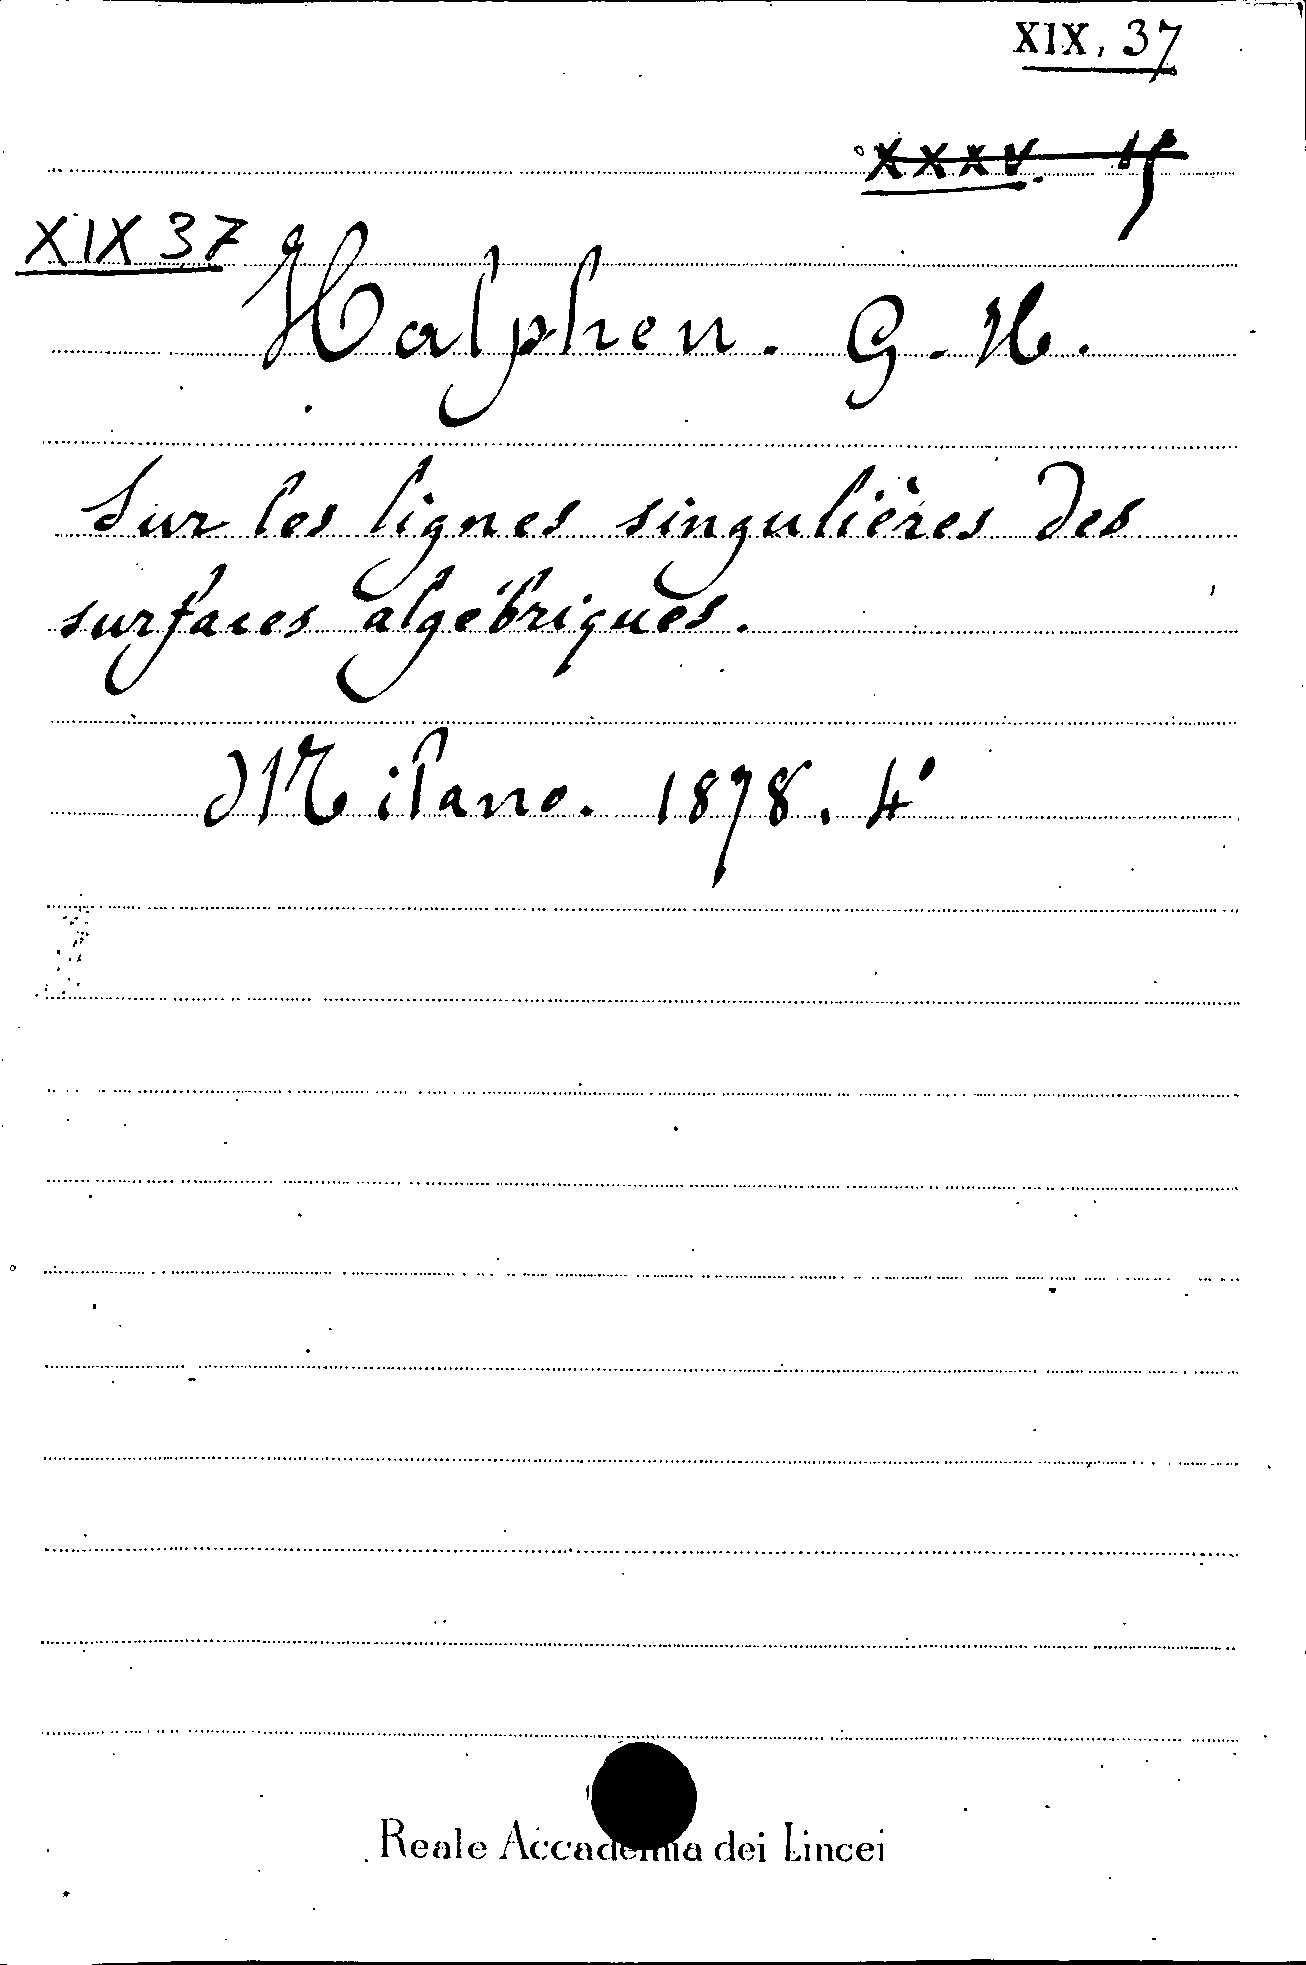 XIX, 37
XXXV. 15
XIX 37
Halphen. G. H.
Sur les lignes singulières des
surfaces algébriques.
Milano. 1878. 4°
Reale Accademia dei Lincei